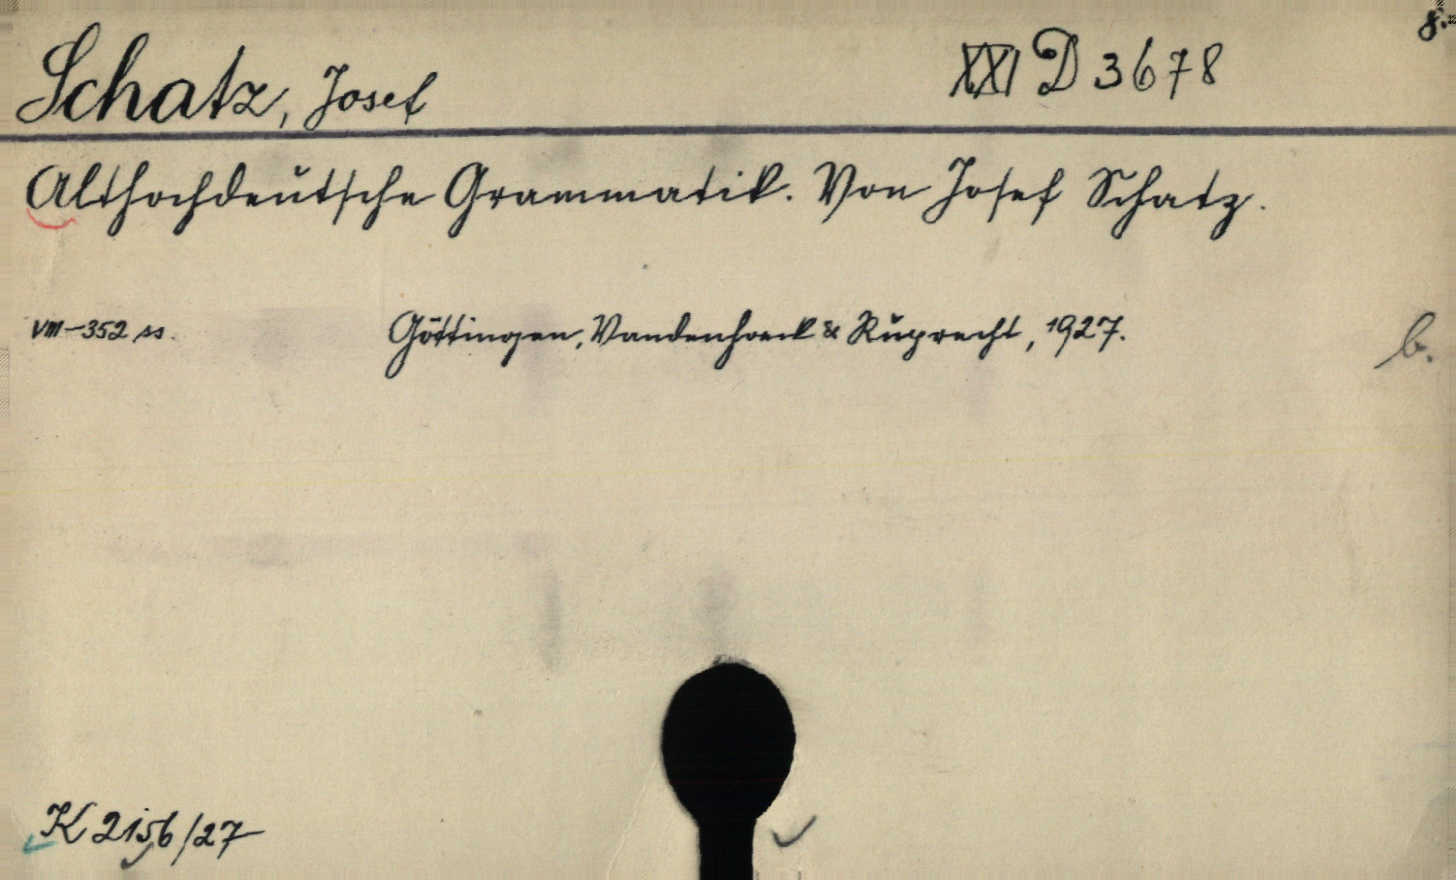 8.
Schatz, Josef XXI D 3678
Althochdeutsche Grammatik. Von Josef Schatz.
VIII-352 ss. Göttingen, Vandenhoeck & Ruprecht, 1927. b.
K 2156/27